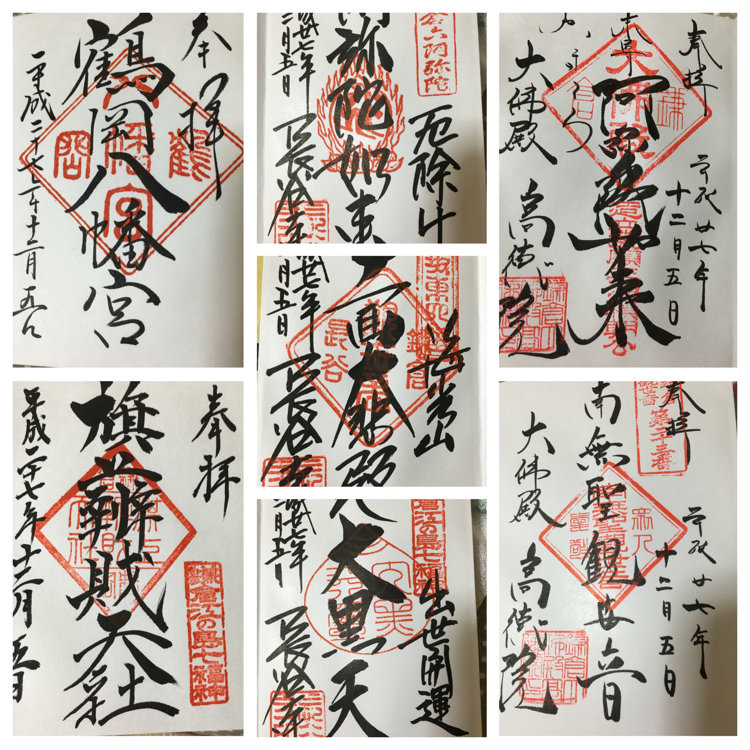 奉拝
鶴岡八幡宮
平成二十七年十二月五日
鶴
岡
奉拝
旗上弁財天社
平成二十七年十二月五日
鎌倉江の島七福神
六阿弥陀
厄除
弥陀如来
廿七年
二月五日
長谷寺
海光山
鎌倉
長谷
十一面大悲殿
廿七年
月五日
長谷寺
鎌倉江の島七福神
出世開運
大黒天
廿七年
二月五日
長谷寺
奉拝
平成廿七年
十二月五日
阿弥陀如来
大佛殿
高徳院
奉拝
平成廿七年
十二月五日
南無聖観世音
大佛殿
高徳院